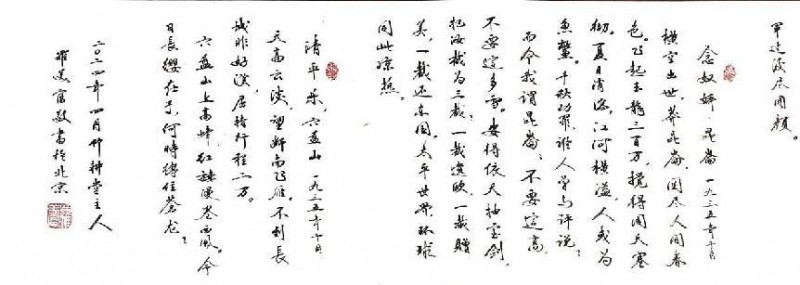 軍过後尽開顔。
念奴娇·昆崙 一九三五年十月
横空出世，莽昆崙，阅尽人间春
色。飞起玉龍三百万，搅得周天寒
彻。夏日消溶，江河横溢，人或为
鱼鳖。千秋功罪，谁人曾与评说？
而今我谓昆崙：不要这高，
不要这多雪。安得倚天抽宝剑，
把汝裁为三截？一截遗欧，一截赠
美，一截还东国。太平世界，环球
同此凉热。
清平乐·六盘山 一九三五年十月
天高云淡，望断南飞雁。不到長
城非好漢，屈指行程二万。
六盘山上高峰，红旗漫卷西風。今
日長缨在手，何時缚住苍龙？
二〇二四年四月竹耕堂主人
羅美富敬書於北京